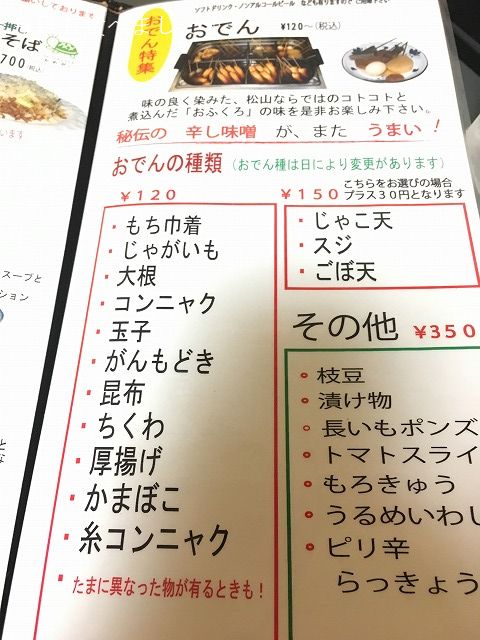 押し
そば
700 税込
います
スープと
ション
ソフトドリンク・ノンアルコールビール なども有りますのでご用命下さい
おでん特集
おでん ¥120～(税込)
味の良く染みた、松山ならではのコトコトと
煮込んだ「おふくろ」の味を是非お楽しみ下さい。
秘伝の 辛し味噌 が、また うまい！
おでんの種類 (おでん種は日により変更があります)
¥120
・もち巾着
・じゃがいも
・大根
・コンニャク
・玉子
・がんもどき
・昆布
・ちくわ
・厚揚げ
・かまぼこ
・糸コンニャク
・たまに異なった物が有るときも！
¥150 こちらをお選びの場合
プラス30円となります
・じゃこ天
・スジ
・ごぼ天
その他 ¥350
○枝豆
○漬け物
○長いもポンズ
○トマトスライ
○もろきゅう
○うるめいわし
○ピリ辛
らっきょう